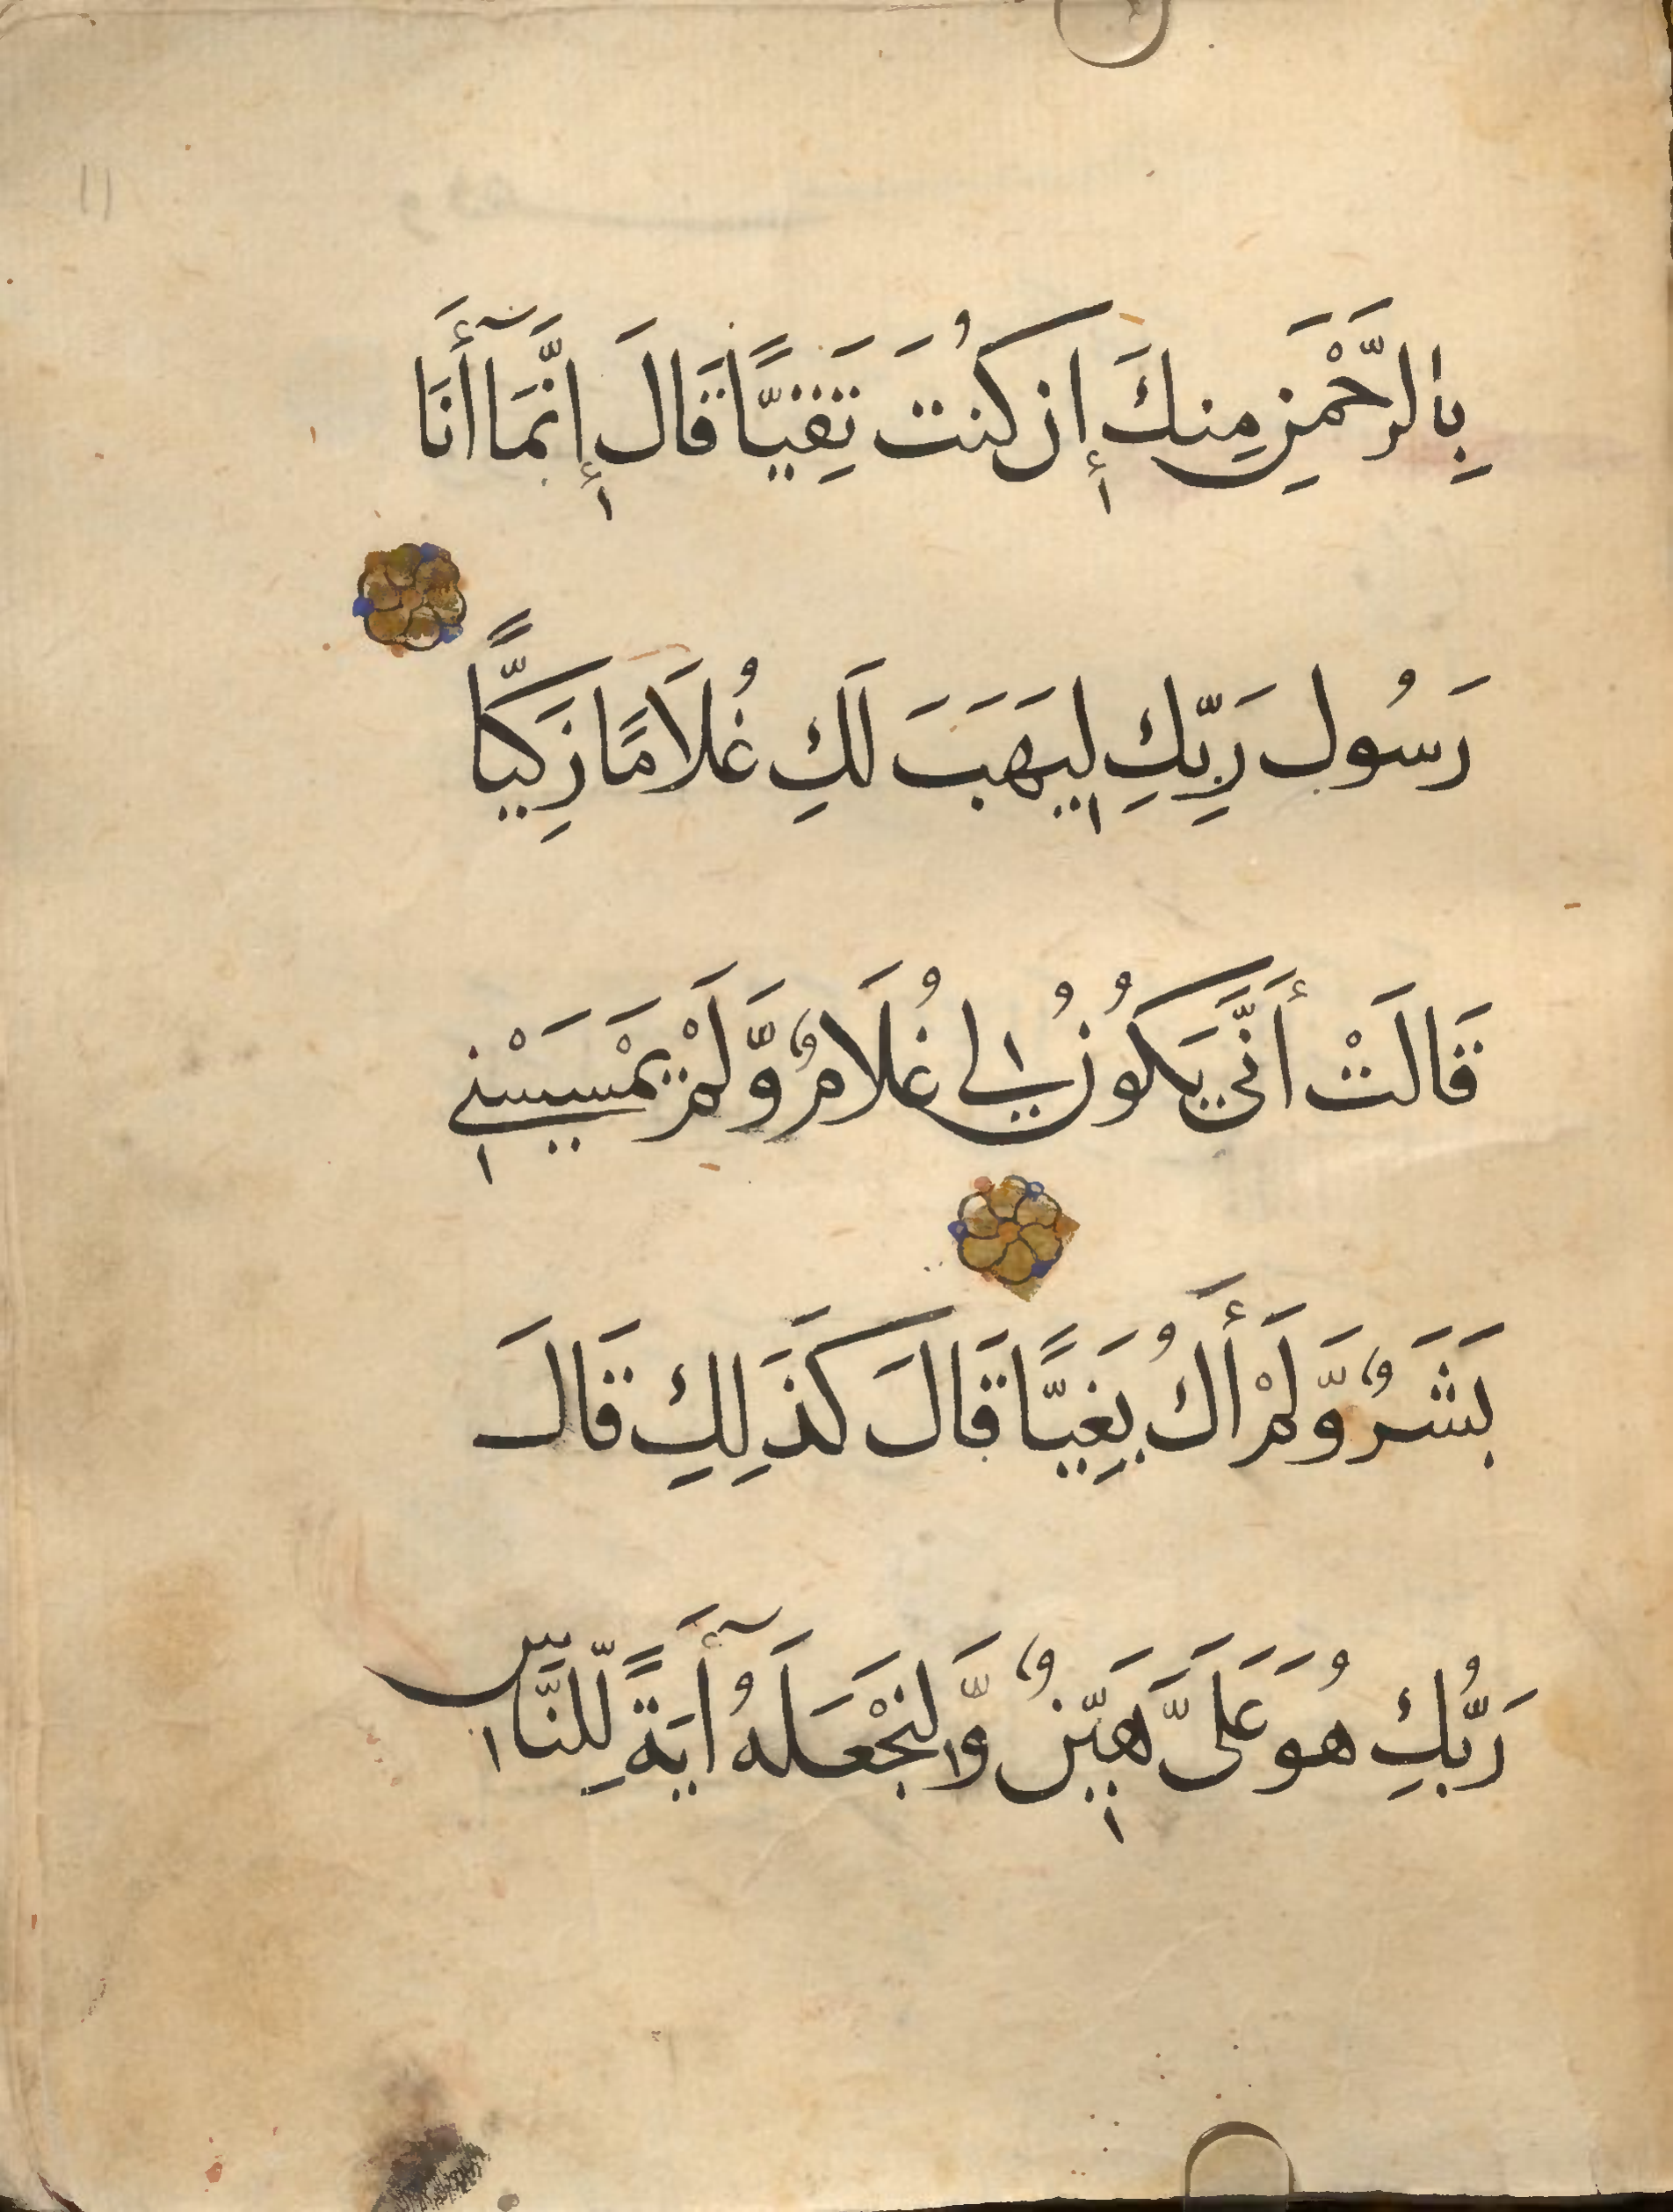 بِالرَّحْمٰنِ مِنكَ إِن كُنتَ تَقِيًّا قَالَ إِنَّمَآ أَنَا
رَسُولُ رَبِّكِ لِيَهَبَ لَكِ غُلَامًا زَكِيًّا
قَالَتْ أَنَّى يَكُونُ لِي غُلَامٌ وَّلَمْ يَمْسَسْنِي
بَشَرٌ وَّلَمْ أَكُ بَغِيًّا قَالَ كَذَلِكِ قَالَ
رَبُّكِ هُوَ عَلَيَّ هَيِّنٌ وَّلِنَجْعَلَهُ آيَةً لِّلنَّاسِ